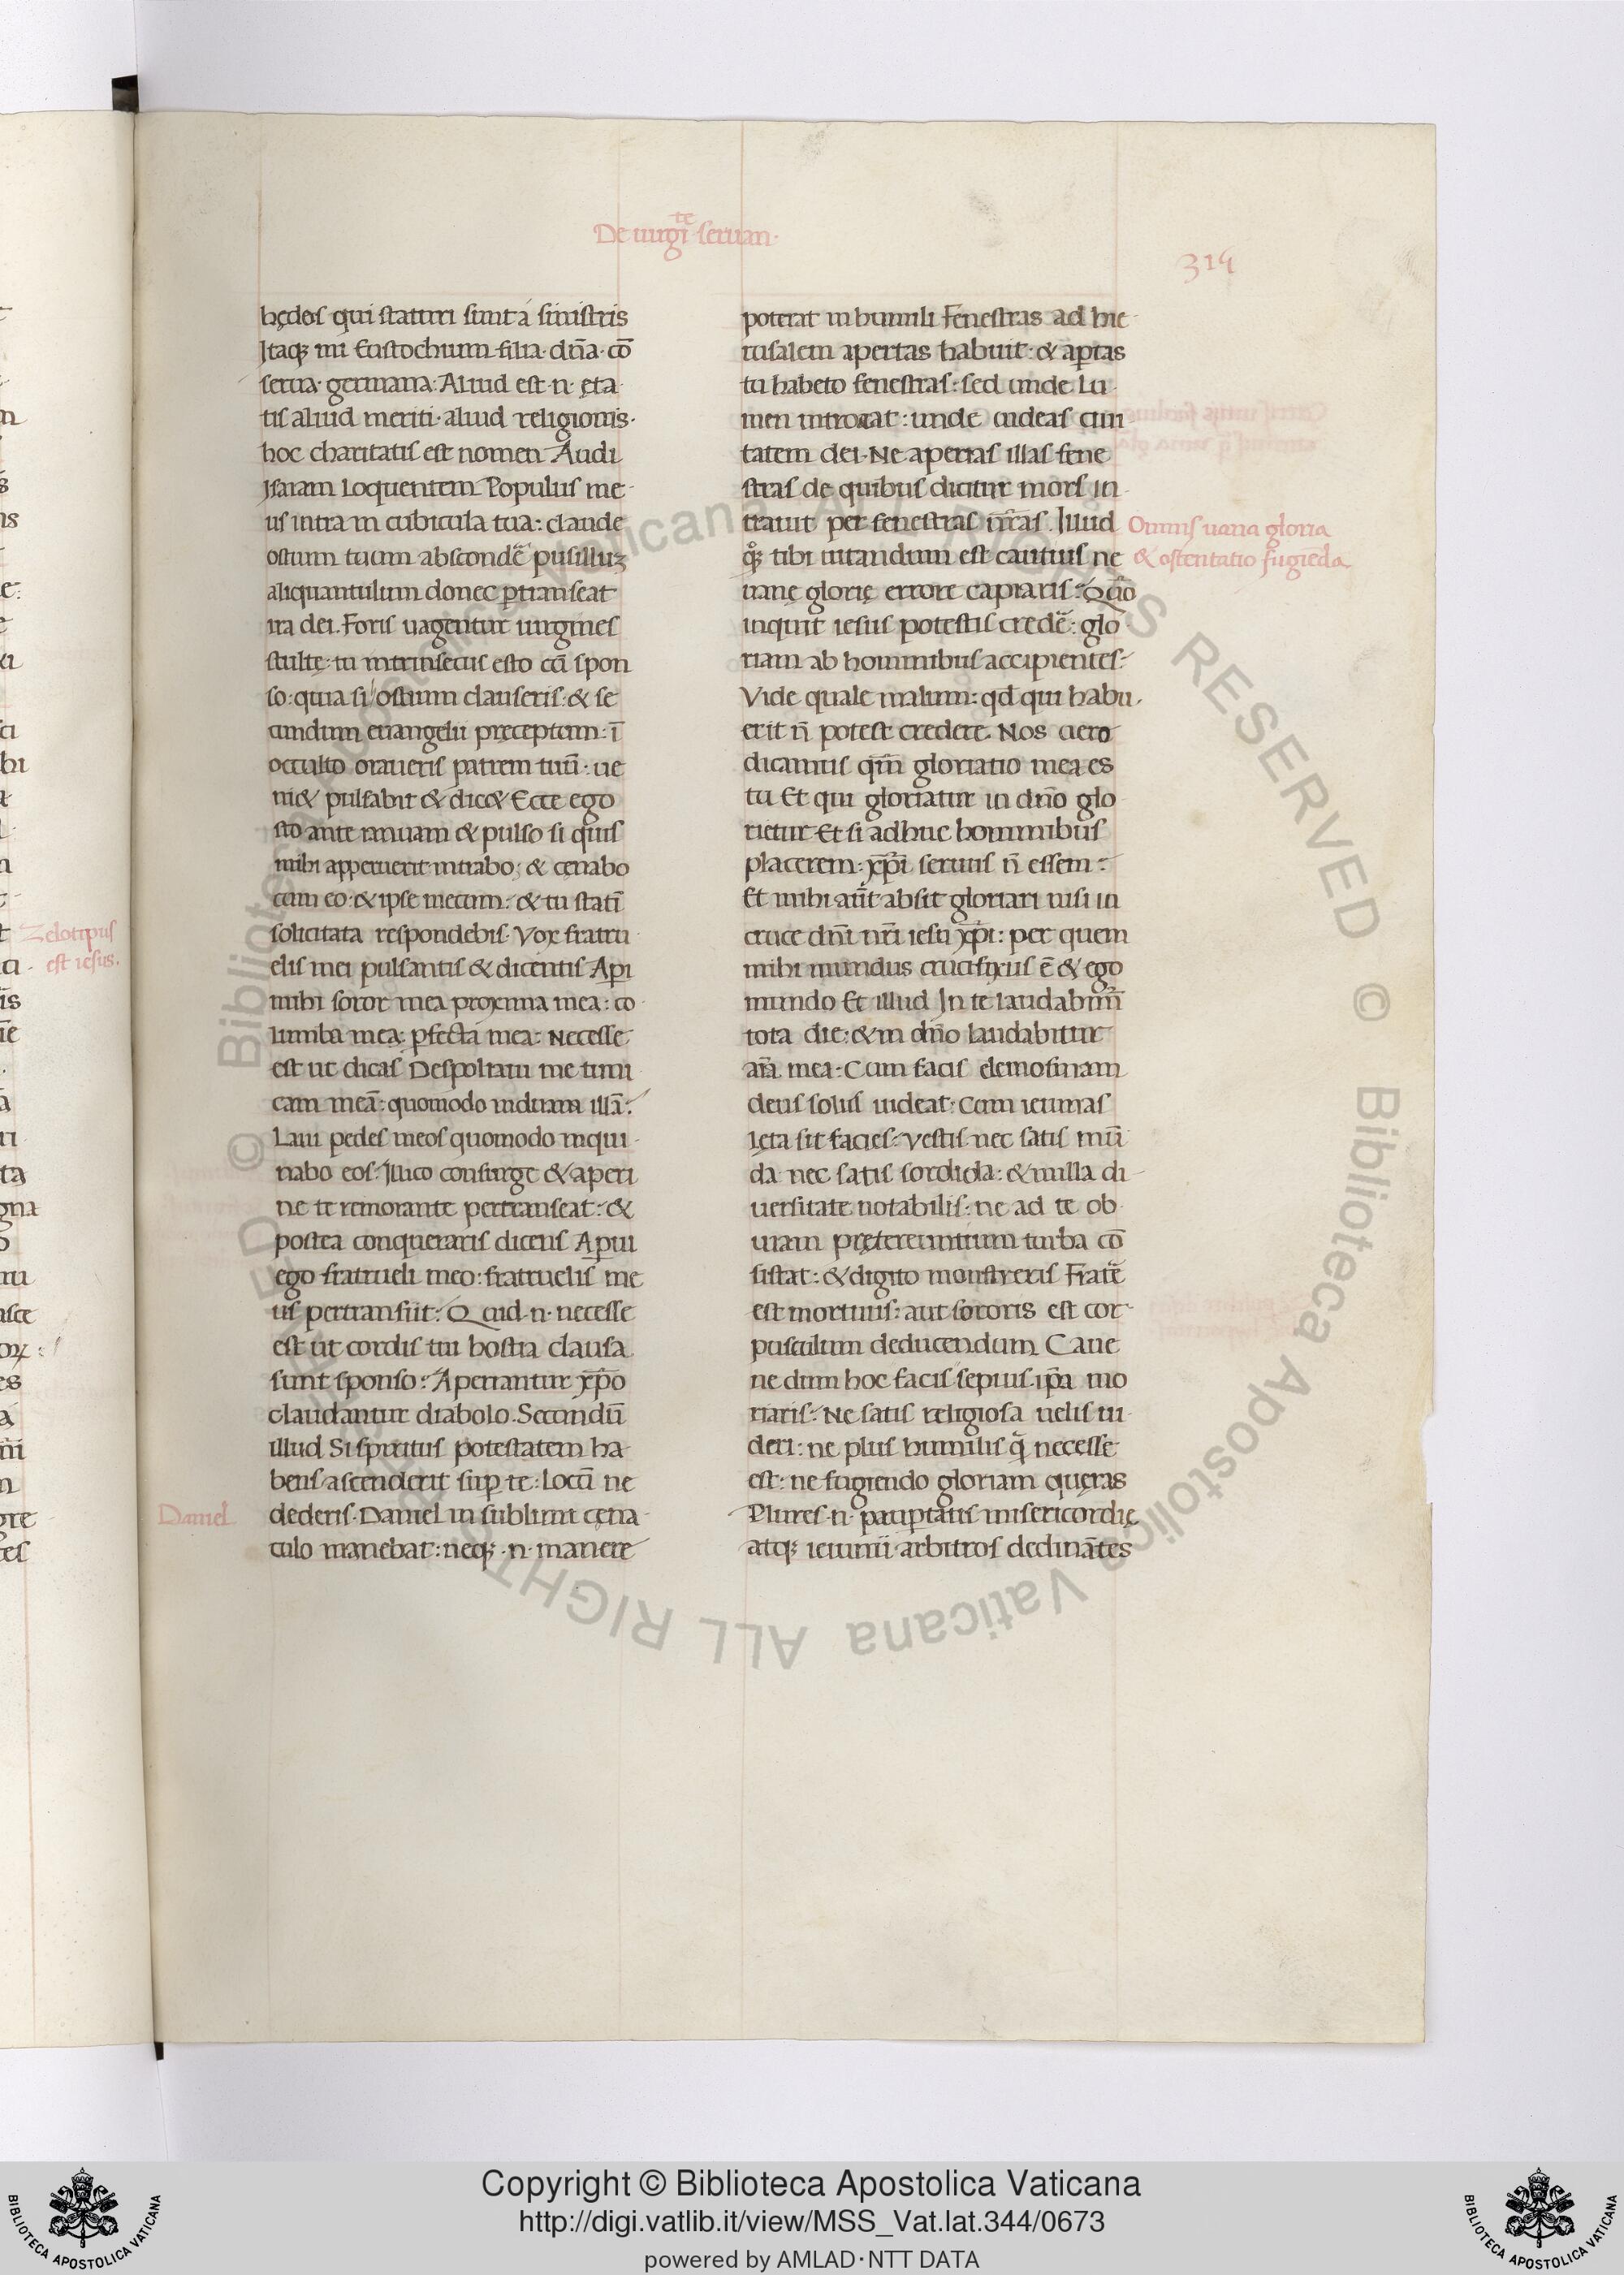 De uirgi^te seruan·
314
hędos qui staturi sunt a sinistris
Itaq; mi Eustochium filia· dn̄a· cō
serua· germana: Aliud est·n· ęta
tis aliud meriti· aliud religionis·
hoc charitatis est nomen Audi
Isaiam Loquentem Populus me
us intra in cubicula tua: claude
ostium tuum abscondē pusilluz
aliquantulum donec ꝑtranseat
ira dei. Foris uagentur uirgines
stultę: tu intrinsecus esto cū spon
so: quia si ostium clauseris: & se
cundum euangelii pręceptum: ī
occulto oraueris patrem tuū: ue
ni& pulsabit & dic& Ecce ego
sto ante ianuam & pulso si quis
mihi apperuerit intrabo; & cęnabo
cum eo: & ipse mecum: & tu statī
solicitata respondebis· Vox fratru
elis mei pulsantis & dicentis Aperi
mihi soror mea proxima mea: co
lumba mea: ꝑfecta mea: Necesse
est ut dicas Despoliaui me tuni
cam meā: quomodo induam illā:
Laui pedes meos quomodo inqui
nabo eos: Illico consurge & aperi
ne te remorante pertranseat: &
postea conqueraris dicens Aperui
ego fratrueli meo: fratruelis me
us pertransiit: Quid·n· necesse
est ut cordis tui hostia clausa
sunt sponso: Aperiantur xp̄o
claudantur diabolo. Secundū
illud Si spiritus potestatem ha
bens ascenderit suꝑ te: Locū ne
dederis· Daniel in sublimi cęna
culo manebat: neq; ·n· manere
Daniel
poterat in humili Fenestras ad hie
rusalem apertas habuit: & aꝑtas
tu habeto fenestras: sed unde Lu
men introeat: unde uideas ciui
tatem dei· Ne aperias illas fene
stras de quibus dicitur mors in
trauit per fenestras n̄ras. Illud
quoq; tibi uitandum est cautius ne
uanę glorię errore capiaris: Quō
inquit iesus potestis credē: glo
riam ab hominibus accipientes:
Vide quale malum: qd qui habu
erit n̄ potest credere. Nos uero
dicamus qm̄ gloriatio mea es
tu Et qui gloriatur in dn̄o glo
rietur Et si adhuc hominibus
placerem: xp̄i seruus n̄ essem:
Et mihi aūt absit gloriari nisi in
cruce dn̄i nr̄i iesu xp̄i: per quem
mihi mundus crucifixus ē & ego
mundo Et illud In te laudabim̄
tota die: & in dn̄o laudabitur
aīa mea· Cum facis elemosinam
deus solus uideat: Cum ieiunas
lęta sit facies: Vestis nec satis mū
da nec satis sordida: & nulla di
uersitate notabilis: ne ad te ob
uiam pręterenntium turba cō
sistat: & digito monstreris Fratē
est mortuus: aut sororis est cor
pusculum deducendum Caue
ne dum hoc facis sepius ip̄a mo
riaris: Ne satis religiosa uelis ui
deri: ne plus humilis q̄ necesse
est: ne fugiendo gloriam quęras
Plures·n· pauꝑtatis misericordię
atq; ieiunii· arbitros declinātes
Omnis uana gloria
& ostentatio fugiēda
Zelotipus
est iesus·
Copyright © Biblioteca Apostolica Vaticana
http://digi.vatlib.it/view/MSS_Vat.lat.344/0673
powered by AMLAD·NTT DATA
BIBLIOTECA APOSTOLICA VATICANA
BIBLIOTECA APOSTOLICA VATICANA
© Biblioteca Apostolica Vaticana ALL RIGHTS RESERVED © Biblioteca Apostolica Vaticana ALL RIGHTS RESERVED